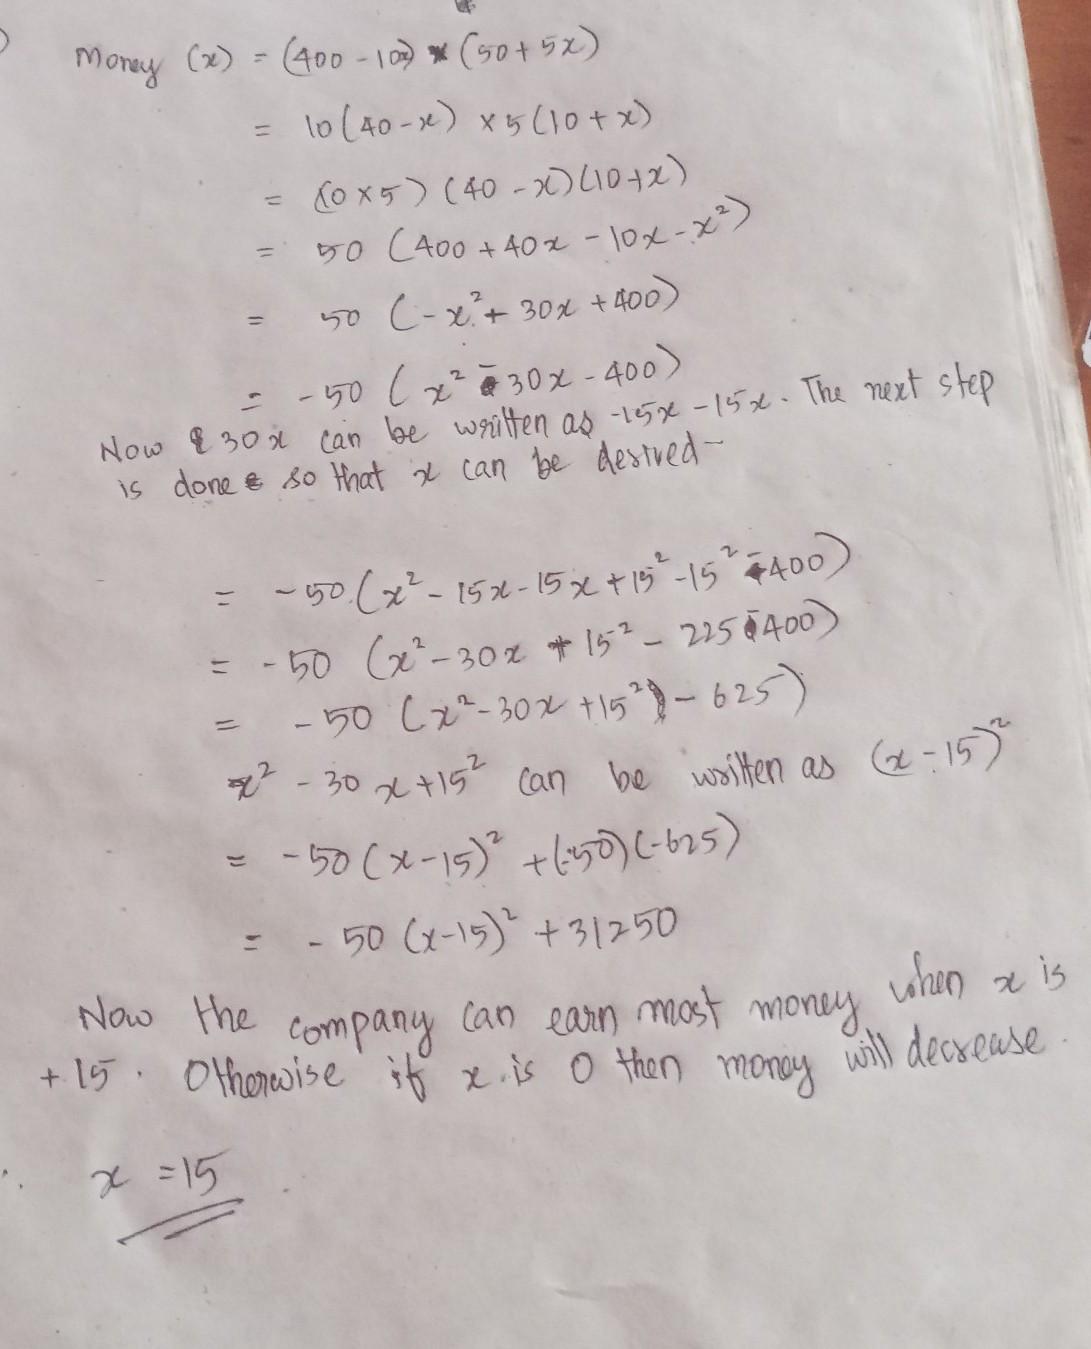 Money (x) = (400 - 10x) * (50 + 5x)
= 10(40-x) x 5(10+x)
= (10x5) (40-x)(10+x)
= 50 (400 + 40x - 10x - x²)
= 50 (-x² + 30x + 400)
= -50 (x² - 30x - 400)
Now 30x can be written as -15x - 15x. The next step
is done so that x can be derived-
= -50.(x² - 15x - 15x + 15² - 15² - 400)
= -50 (x² - 30x + 15² - 225 - 400)
= -50 (x² - 30x + 15²) - 625)
x² - 30x + 15² can be written as (x-15)²
= -50(x-15)² + (-50)(-625)
= -50 (x-15)² + 31250
Now the company can earn most money when x is
+15. Otherwise if x is 0 then money will decrease.
∴ x = 15